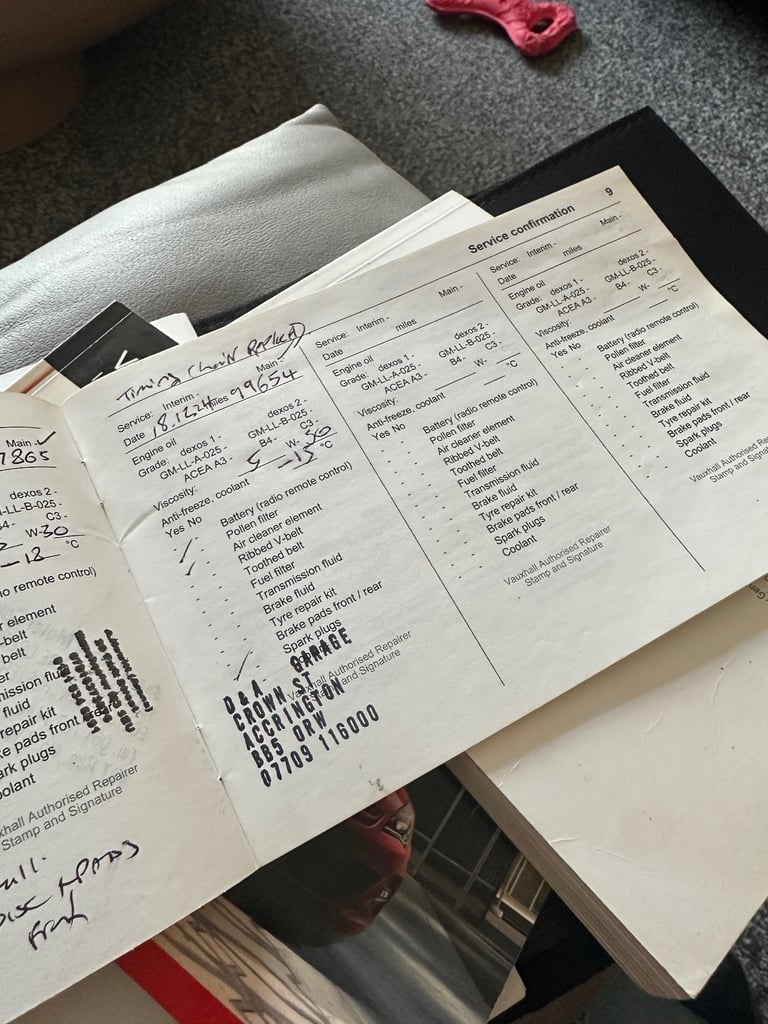 Main ✓
7865
dexos 2 -
GM-LL-B-025 -
B4 - C3 -
W-30
-12 °C
io remote control)
element
-belt
belt
fluid
repair kit
plugs
Vauxhall Authorised Repairer
Stamp and Signature
DISC + PADS
Front
Timing Chain Replaced
Service: Interim - Main -
Date 18.12.24 miles 99654
Engine oil
Grade: dexos 1 - dexos 2 -
GM-LL-A-025 - GM-LL-B-025 -
ACEA A3 - B4 - C3 -
Viscosity: 5 W- 30
Anti-freeze, coolant -15 °C
Yes No
Battery (radio remote control)
Pollen filter
Air cleaner element
Ribbed V-belt
Toothed belt
Fuel filter
Transmission fluid
Brake fluid
Tyre repair kit
Brake pads front / rear
Spark plugs
Vauxhall Authorised Repairer
Stamp and Signature
D & A GARAGE
CROWN ST
ACCRINGTON
BB5 0RW
07709 116000
Service: Interim - Main -
Date miles
Engine oil
Grade: dexos 1 - dexos 2 -
GM-LL-A-025 - GM-LL-B-025 -
ACEA A3 - B4 - C3 -
Viscosity: W-
Anti-freeze, coolant °C
Yes No
Battery (radio remote control)
Pollen filter
Air cleaner element
Ribbed V-belt
Toothed belt
Fuel filter
Transmission fluid
Brake fluid
Tyre repair kit
Brake pads front / rear
Spark plugs
Coolant
Vauxhall Authorised Repairer
Stamp and Signature
Service confirmation 9
Service: Interim - Main -
Date miles
Engine oil
Grade: dexos 1 - dexos 2 -
GM-LL-A-025 - GM-LL-B-025 -
ACEA A3 - B4 - C3 -
Viscosity: W-
Anti-freeze, coolant °C
Yes No
Battery (radio remote control)
Pollen filter
Air cleaner element
Ribbed V-belt
Toothed belt
Fuel filter
Transmission fluid
Brake fluid
Tyre repair kit
Brake pads front / rear
Spark plugs
Coolant
Vauxhall Authorised Repairer
Stamp and Signature